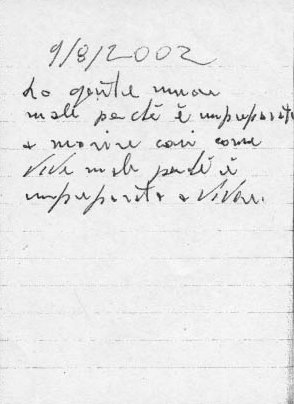 9/8/2002
La gente muore
male perché è impreparata
a morire così come
vive male perché è
impreparata a vivere.